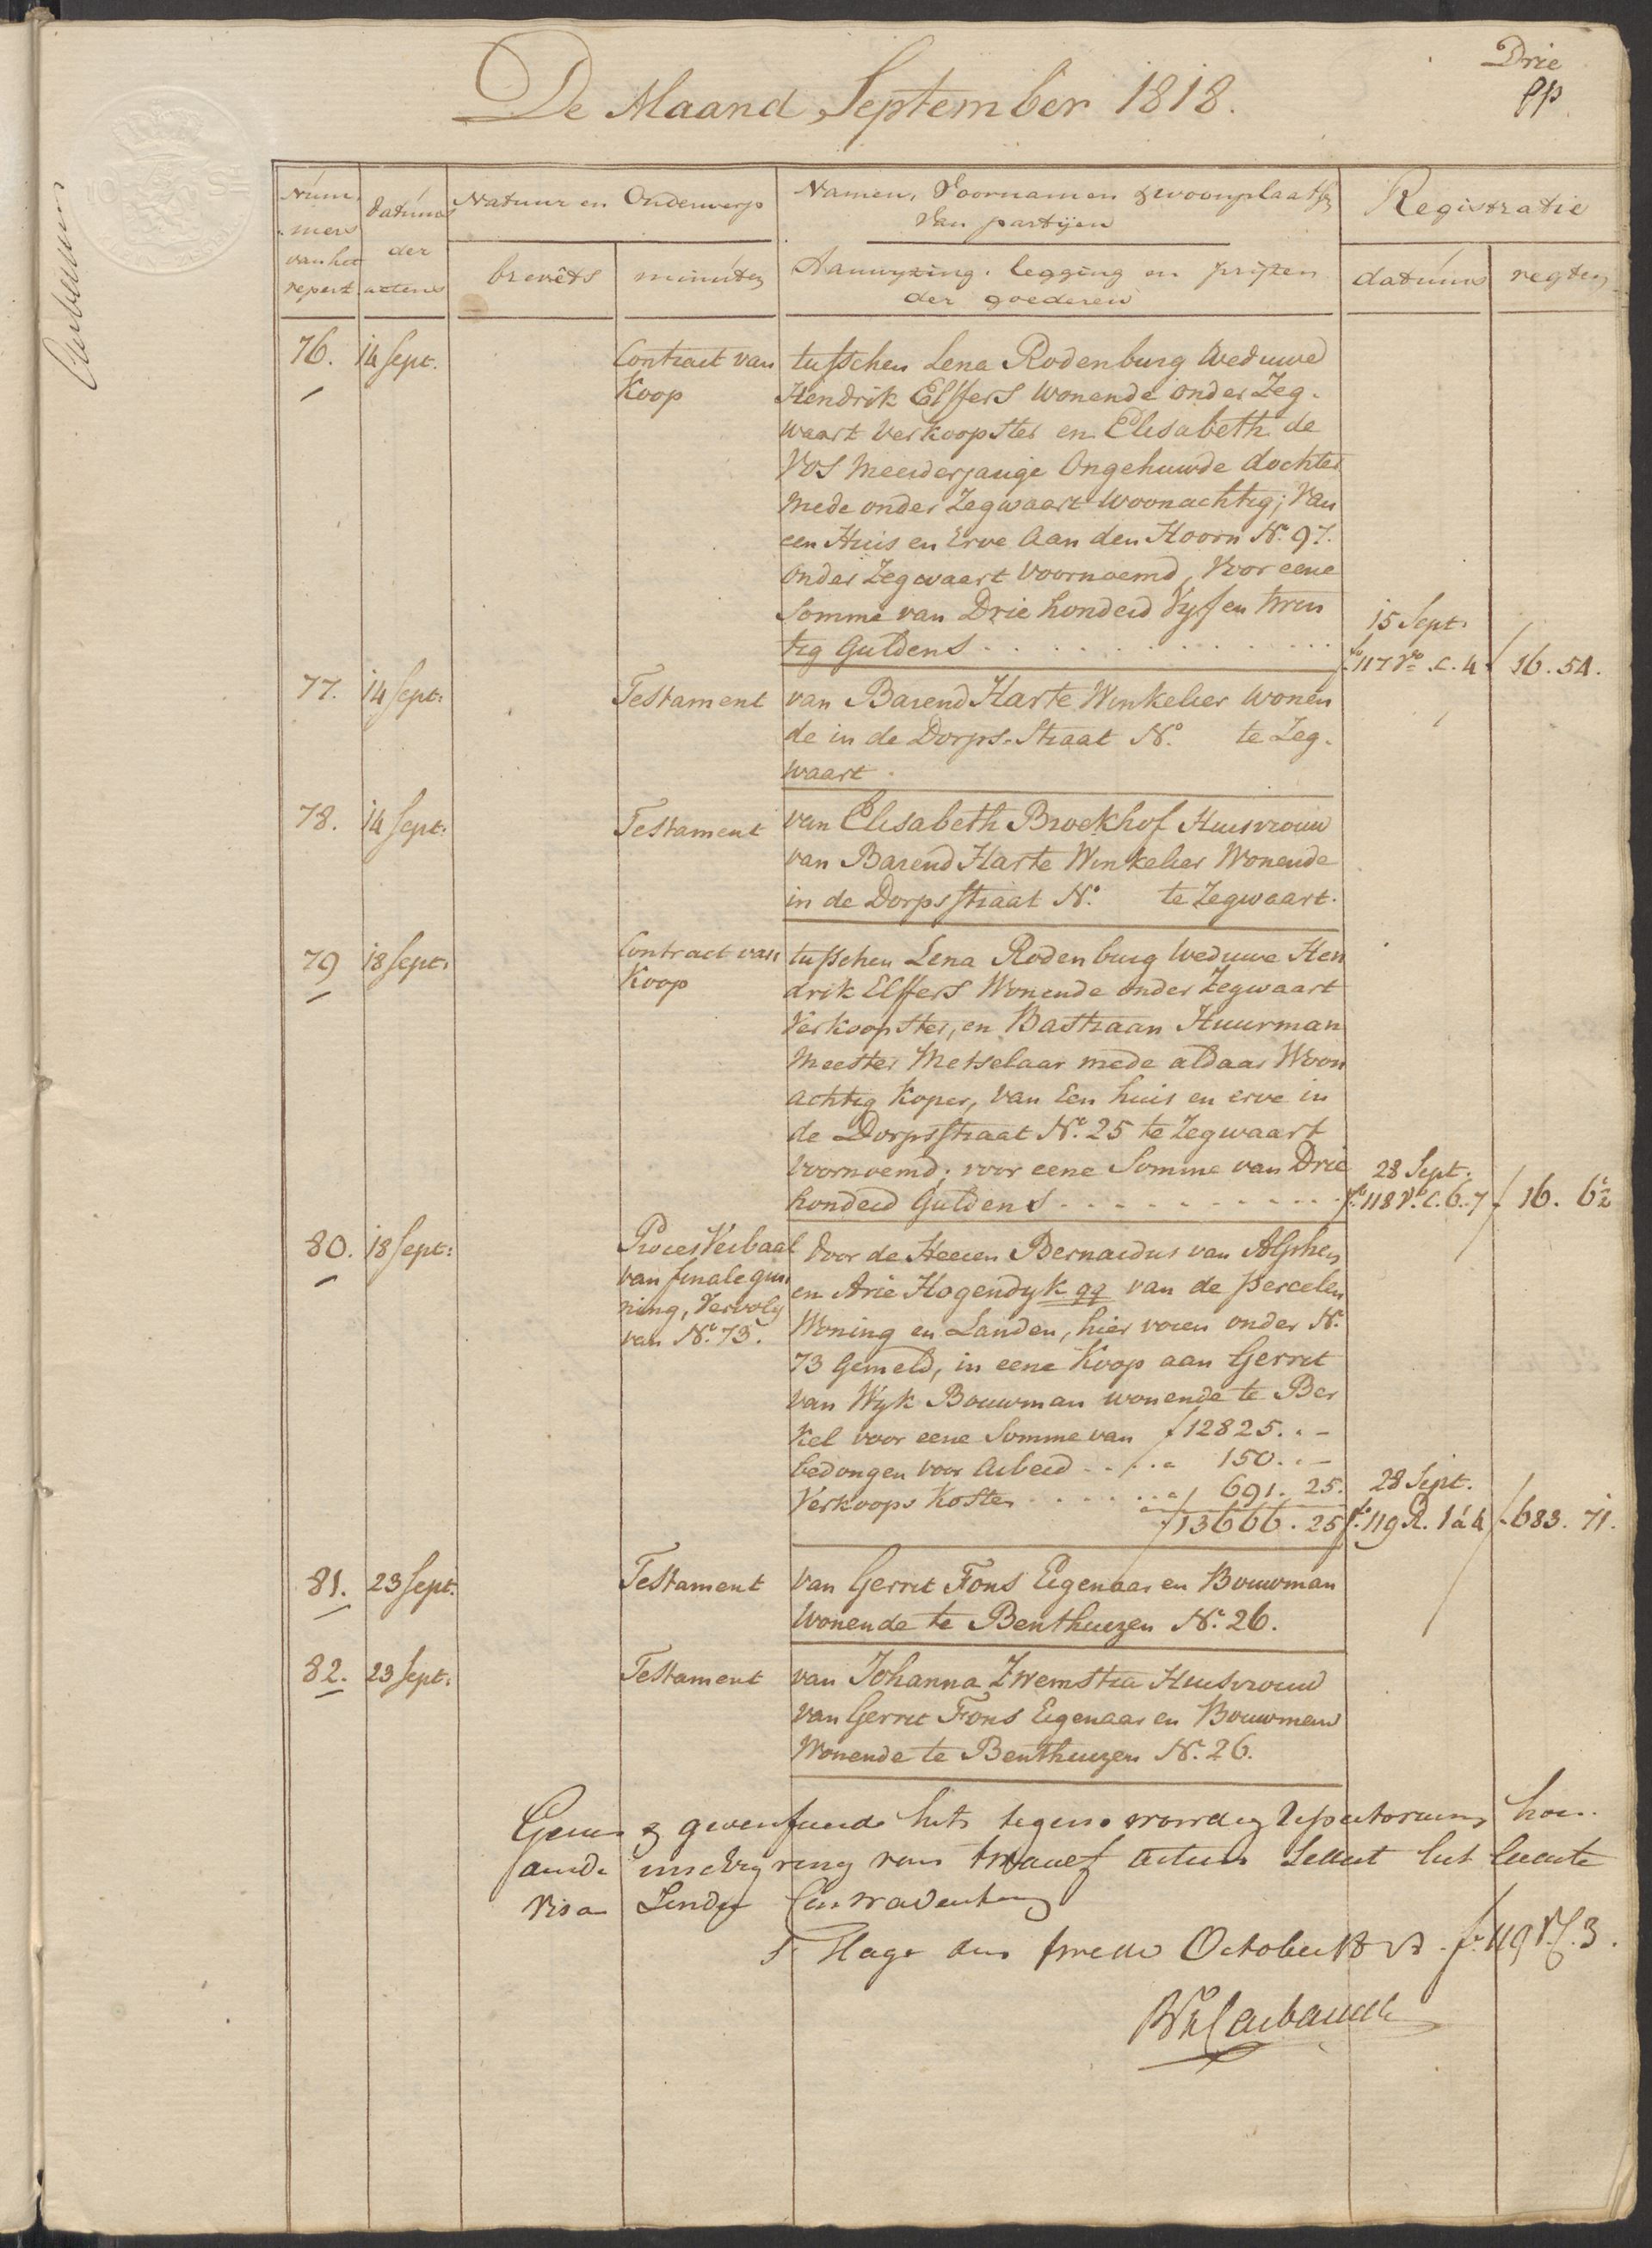 Drie
De Maand September 1818.
Num¬
mers
van het
repert
datums
der
actens
Natuur en Onderwerp
brevêts
minúten
Namen, Voornamen & woonplaatsen
Van partijen
Aanwyzing. legging en prijzen
der goederen
Registratie
datúms
regten
76. 14 Sept. Contract van tusschen Lena Rodenburg Weduwe
Koop Hendrik Elffers wonende onder Zeg-
waart Verkoopster en Elisabeth de
Vos meerderjarige Ongehuwde dochter
mede onder Zegwaart woonachtig; Van
een Huis en Erve Aan den Hoorn No. 97.
onder Zegwaart voornoemd, Voor eene
Somme van Drie honderd Vyf en twin 15 Sept.
tig Guldens . . . . . . . . . . fo 117 vo. C. 4 f 16. 54.
77. 14 Sept: Testament van Barend Harte Winkelier wonen
de in de Dorps-Straat No. te Zeg-
waart.
78. 14 Sept: Testament van Elisabeth Broekhof Huisvrouw
van Barend Harte Winkelier Wonende
in de Dorpsstraat No. te Zegwaart.
79 18 Sept: Contract van tusschen Lena Rodenburg Weduwe Hen
Koop drik Elffers Wonende onder Zegwaart
Verkoopster, en Bastiaan Huurman
Meester Metselaar mede aldaar Woon
achtig Koper, van Een huis en erve in
de Dorpsstraat No. 25 te Zegwaart
voornoemd; voor eene Somme van Drie 28 Sept.
honderd Guldens . . . . . . . . . . fo 118 Vo. C. 6. 7 f 16. 6½
80. 18 Sept: Proces Verbaal door de Heeren Bernardus van Alphen
van finale gun en Arie Hogendyk qq van de perceelen
ning, Vervolg Woning en Landen, hier voren onder No.
van No. 73. 73 gemeld, in eene Koop aan Gerrit
van Wyk Bouwman wonende te Ber
kel voor eene Somme van f 12825. . -
bedongen voor Arbeid . . . . 150. . -
Verkoops Kosten . . . . . . 691. 25. 28 Sept.
f 13666. 25 fo. 119 R. 1 á 4 f 683. 71.
81. 23 Sept: Testament van Gerrit Fons Eigenaar en Bouwman
Wonende te Benthuizen No. 26.
82. 23 Sept: Testament van Johanna Zwemstra Huisvrouw
van Gerrit Fons Eigenaar en Bouwman
Wonende te Benthuizen No. 26.
Gezien & geverifieerd het tegenwoordig Repertorium hou-
dende inschryving van twaalf actens sedert het laatste
Visa Zonder
S Hage den twede October 1818. fo. 119 V. C. 3.